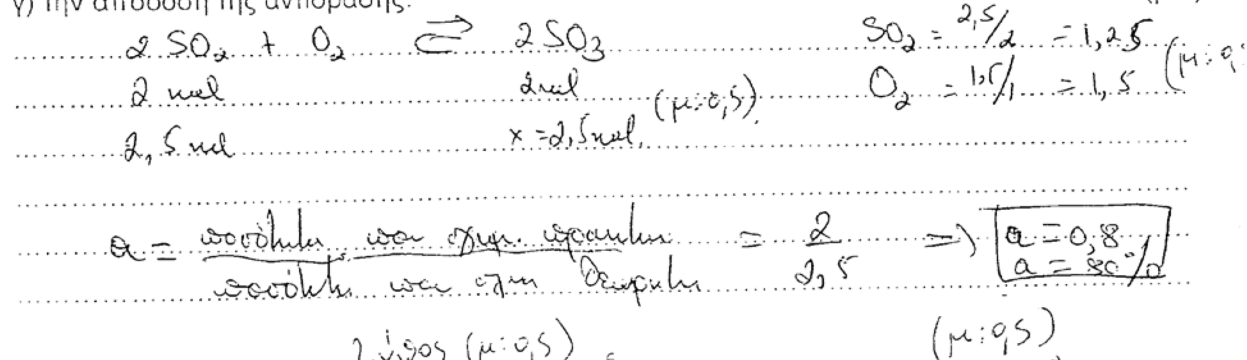 γ) την απόδοση της αντίδρασης.
2 SO₂ + O₂ ⇄ 2 SO₃ SO₂ = 2,5/2 = 1,25
2 mol 2 mol (μ:0,5) O₂ = 1,5/1 = 1,5 (μ:0,
2,5 mol x = 2,5 mol.
α = ποσότητα που σχημ. πρακτικά / ποσότητα που σχημ θεωρητικά = 2 / 2,5 => α = 0,8
α = 80%
(μ:0,5) (μ:0,5)